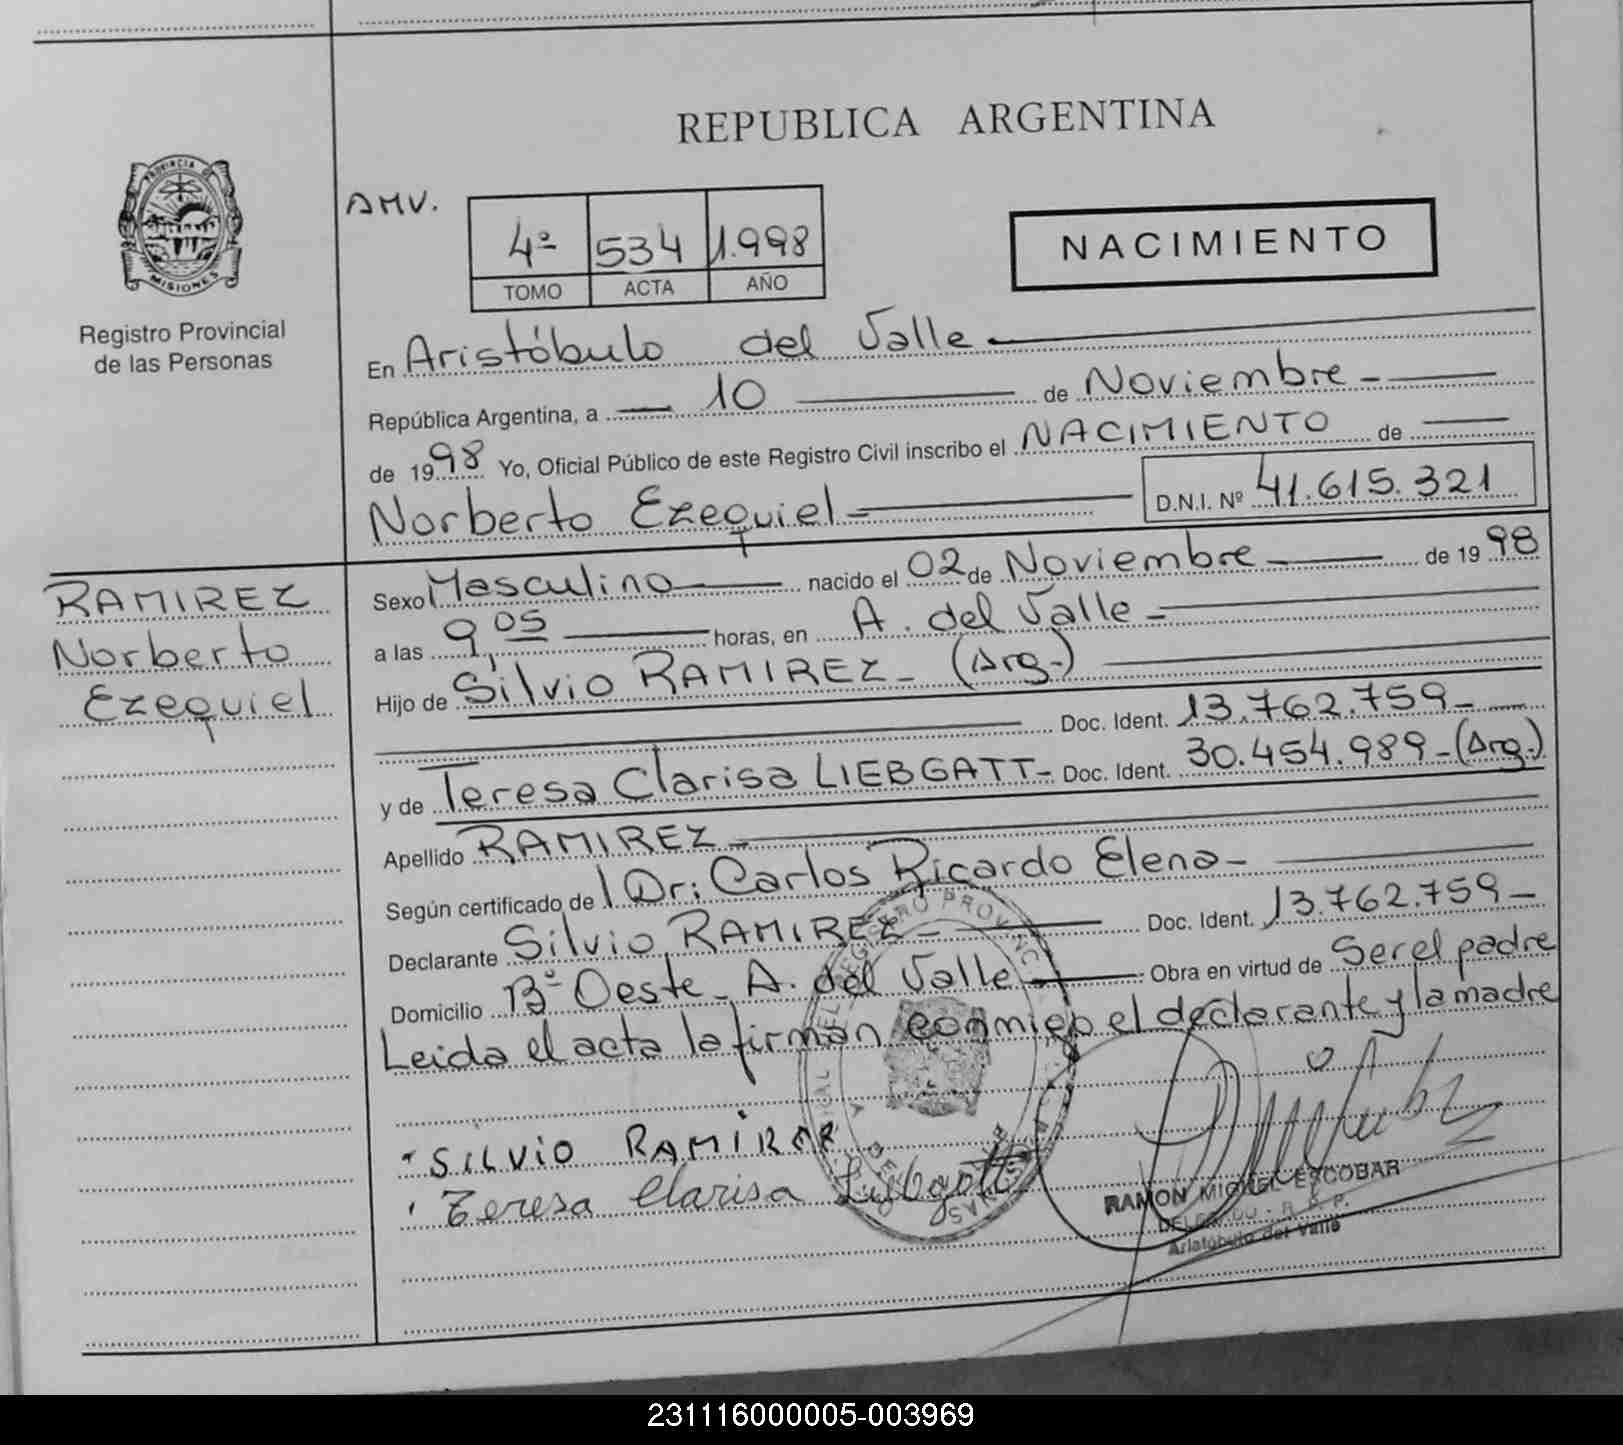 REPUBLICA ARGENTINA
PROVINCIA DE
MISIONES
Registro Provincial
de las Personas
AMV.
4º 534 1.998
TOMO ACTA AÑO
NACIMIENTO
En Aristóbulo del Valle
República Argentina, a 10 de Noviembre
de 1998 Yo, Oficial Público de este Registro Civil inscribo el NACIMIENTO de
Norberto Ezequiel D.N.I. Nº 41.615.321
RAMIREZ
Norberto
Ezequiel
Sexo Masculino nacido el 02 de Noviembre de 1998
a las 9,05 horas, en A. del Valle
Hijo de Silvio RAMIREZ (Arg.)
Doc. Ident. 13.762.759
y de Teresa Clarisa LIEBGATT Doc. Ident. 30.454.989 (Arg.)
Apellido RAMIREZ
Según certificado de Dr: Carlos Ricardo Elena
Declarante Silvio RAMIREZ Doc. Ident. 13.762.759
Domicilio Bº Oeste A. del Valle Obra en virtud de Ser el padre
Leida el acta la firman conmigo el declarante y la madre
SiLViO RAMIREZ
Teresa Clarisa
RAMON MIGUEL ESCOBAR
DELEGADO - R. P. P.
Aristóbulo del Valle
231116000005-003969